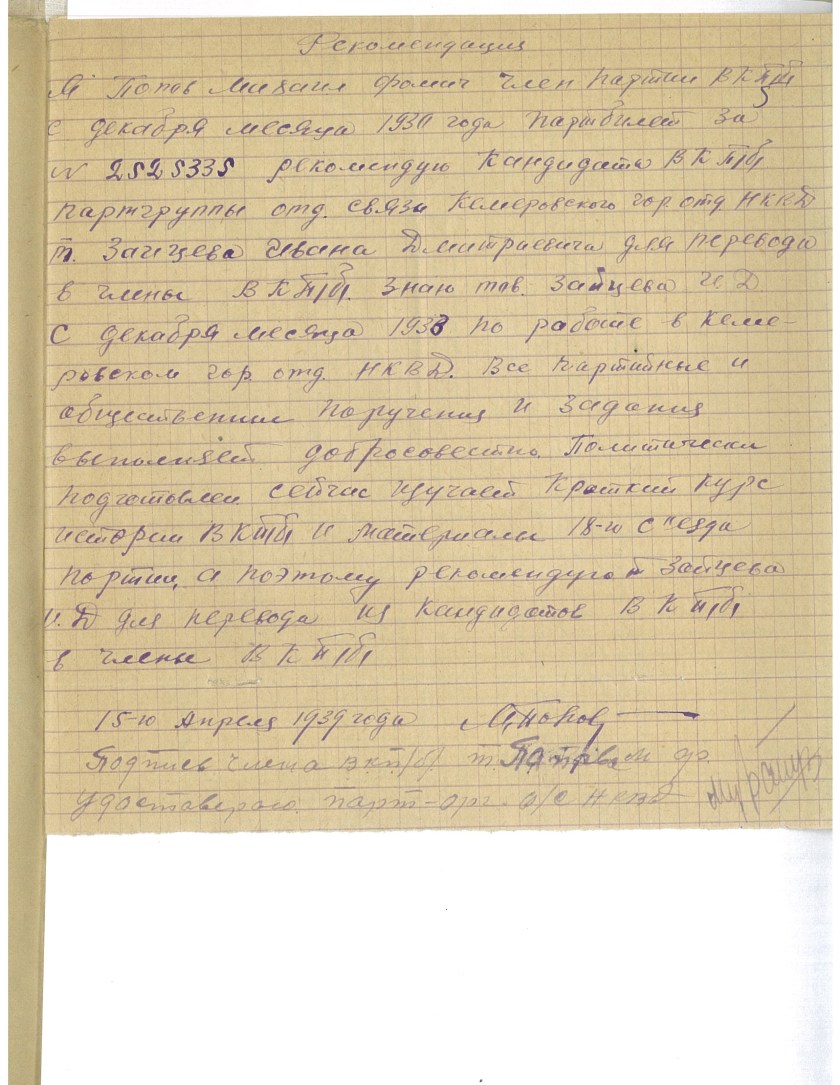 Рекомендация
Я Попов Михаил Фомич член партии ВКП/б/
с декабря месяца 1930 года партбилет за
N 2525335 рекомендую кандидата ВКП/б/
партгруппы отд. связи Кемеровского гор. отд НКВД
т. Зайцева Ивана Дмитриевича для перевода
в члены ВКП/б/. Знаю тов. Зайцева И.Д.
С декабря месяца 1938 по работе в Кеме-
ровском гор. отд. НКВД. Все партийные и
общественные поручения и задания
выполняет добросовестно. Политически
подготовлен сейчас изучает Краткий курс
истории ВКП/б/ и материалы 18-го съезда
партии, а поэтому рекомендую т Зайцева
И.Д для перевода из кандидатов ВКП/б/
в члены ВКП/б/
15-го Апреля 1939 года М, Попов,
Подпись члена ВКП/б/ т. Попова М Ф.
удостоверяю парт-орг. о/с НКВД